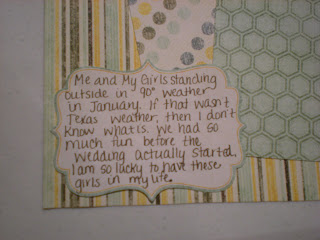 Me and My Girls standing
outside in 90° weather
in January. If that wasn't
Texas weather, then I don't
know what is. We had so
much fun before the
wedding actually started.
I am so lucky to have these
girls in my life.